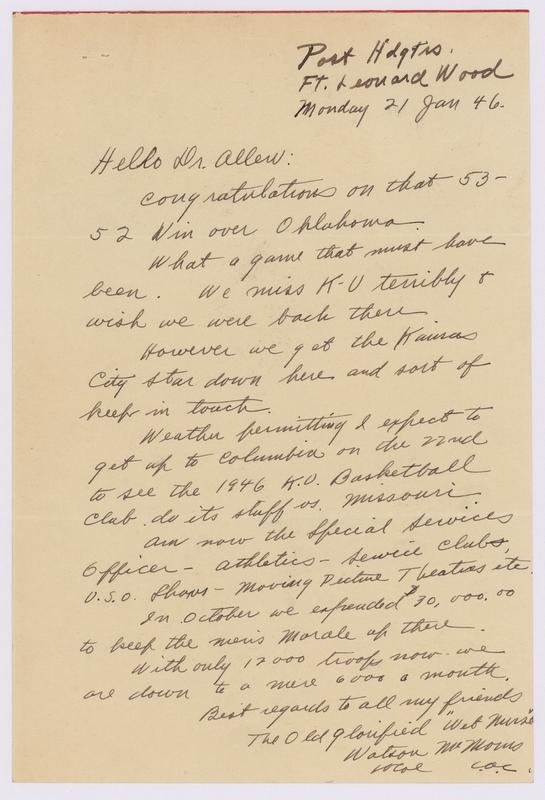 Post Hdqtrs.
Ft. Leonard Wood
Monday 21 Jan 46.
Hello Dr. Allen:
Congratulations on that 53-
52 Win over Oklahoma.
What a game that must have
been. We miss K-U terribly &
wish we were back there
However we get the Kansas
City Star down here and sort of
keep in touch.
Weather permitting I expect to
get up to Columbia on the 22nd
to see the 1946 K.U. Basketball
Club do its stuff vs. Missouri.
Am now the Special Services
Officer - athletics - Service Clubs,
U.S.O. Shows - Moving Picture Theatres etc.
In October we expended $30,000.00
to keep the men's Morale up there.
With only 12000 troops now - we
are down to a mere 6000 a month.
Best regards to all my friends
The Old glorified "Wet Nurse"
Watson